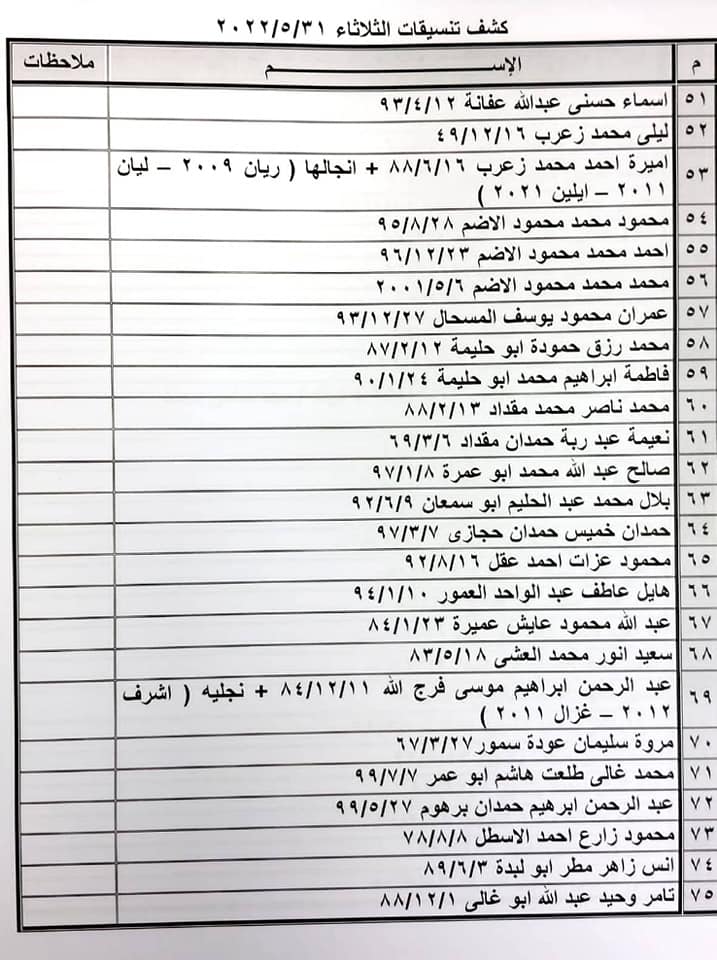 كشف تنسيقات الثلاثاء ٢٠٢٢/٥/٣١
م الإســـــــــم ملاحظات
٥١ اسماء حسنى عبدالله عفانة ٩٣/٤/١٢
٥٢ ليلى محمد زعرب ٤٩/١٢/١٦
٥٣ اميرة احمد محمد زعرب ٨٨/٦/١٦ + انجالها ( ريان ٢٠٠٩ – ليان
٢٠١١ – ايلين ٢٠٢١ )
٥٤ محمود محمد محمود الاضم ٩٥/٨/٢٨
٥٥ احمد محمد محمود الاضم ٩٦/١٢/٢٣
٥٦ محمد محمد محمود الاضم ٢٠٠١/٥/٦
٥٧ عمران محمود يوسف المسحال ٩٣/١٢/٢٧
٥٨ محمد رزق حمودة ابو حليمة ٨٧/٢/١٢
٥٩ فاطمة ابراهيم محمد ابو حليمة ٩٠/١/٢٤
٦٠ محمد ناصر محمد مقداد ٨٨/٢/١٣
٦١ نعيمة عبد ربة حمدان مقداد ٦٩/٣/٦
٦٢ صالح عبد الله محمد ابو عمرة ٩٧/١/٨
٦٣ بلال محمد عبد الحليم ابو سمعان ٩٢/٦/٩
٦٤ حمدان خميس حمدان حجازى ٩٧/٣/٧
٦٥ محمود عزات احمد عقل ٩٢/٨/١٦
٦٦ هايل عاطف عبد الواحد العمور ٩٤/١/١٠
٦٧ عبد الله محمود عايش عميرة ٨٤/١/٢٣
٦٨ سعيد انور محمد العشى ٨٣/٥/١٨
٦٩ عبد الرحمن ابراهيم موسى فرج الله ٨٤/١٢/١١ + نجليه ( اشرف
٢٠١٢ – غزال ٢٠١١ )
٧٠ مروة سليمان عودة سمور ٦٧/٣/٢٧
٧١ محمد غالى طلعت هاشم ابو عمر ٩٩/٧/٧
٧٢ عبد الرحمن ابرهيم حمدان برهوم ٩٩/٥/٢٧
٧٣ محمود زارع احمد الاسطل ٧٨/٨/٨
٧٤ انس زاهر مطر ابو لبدة ٨٩/٦/٣
٧٥ تامر وحيد عبد الله ابو غالى ٨٨/١٢/١